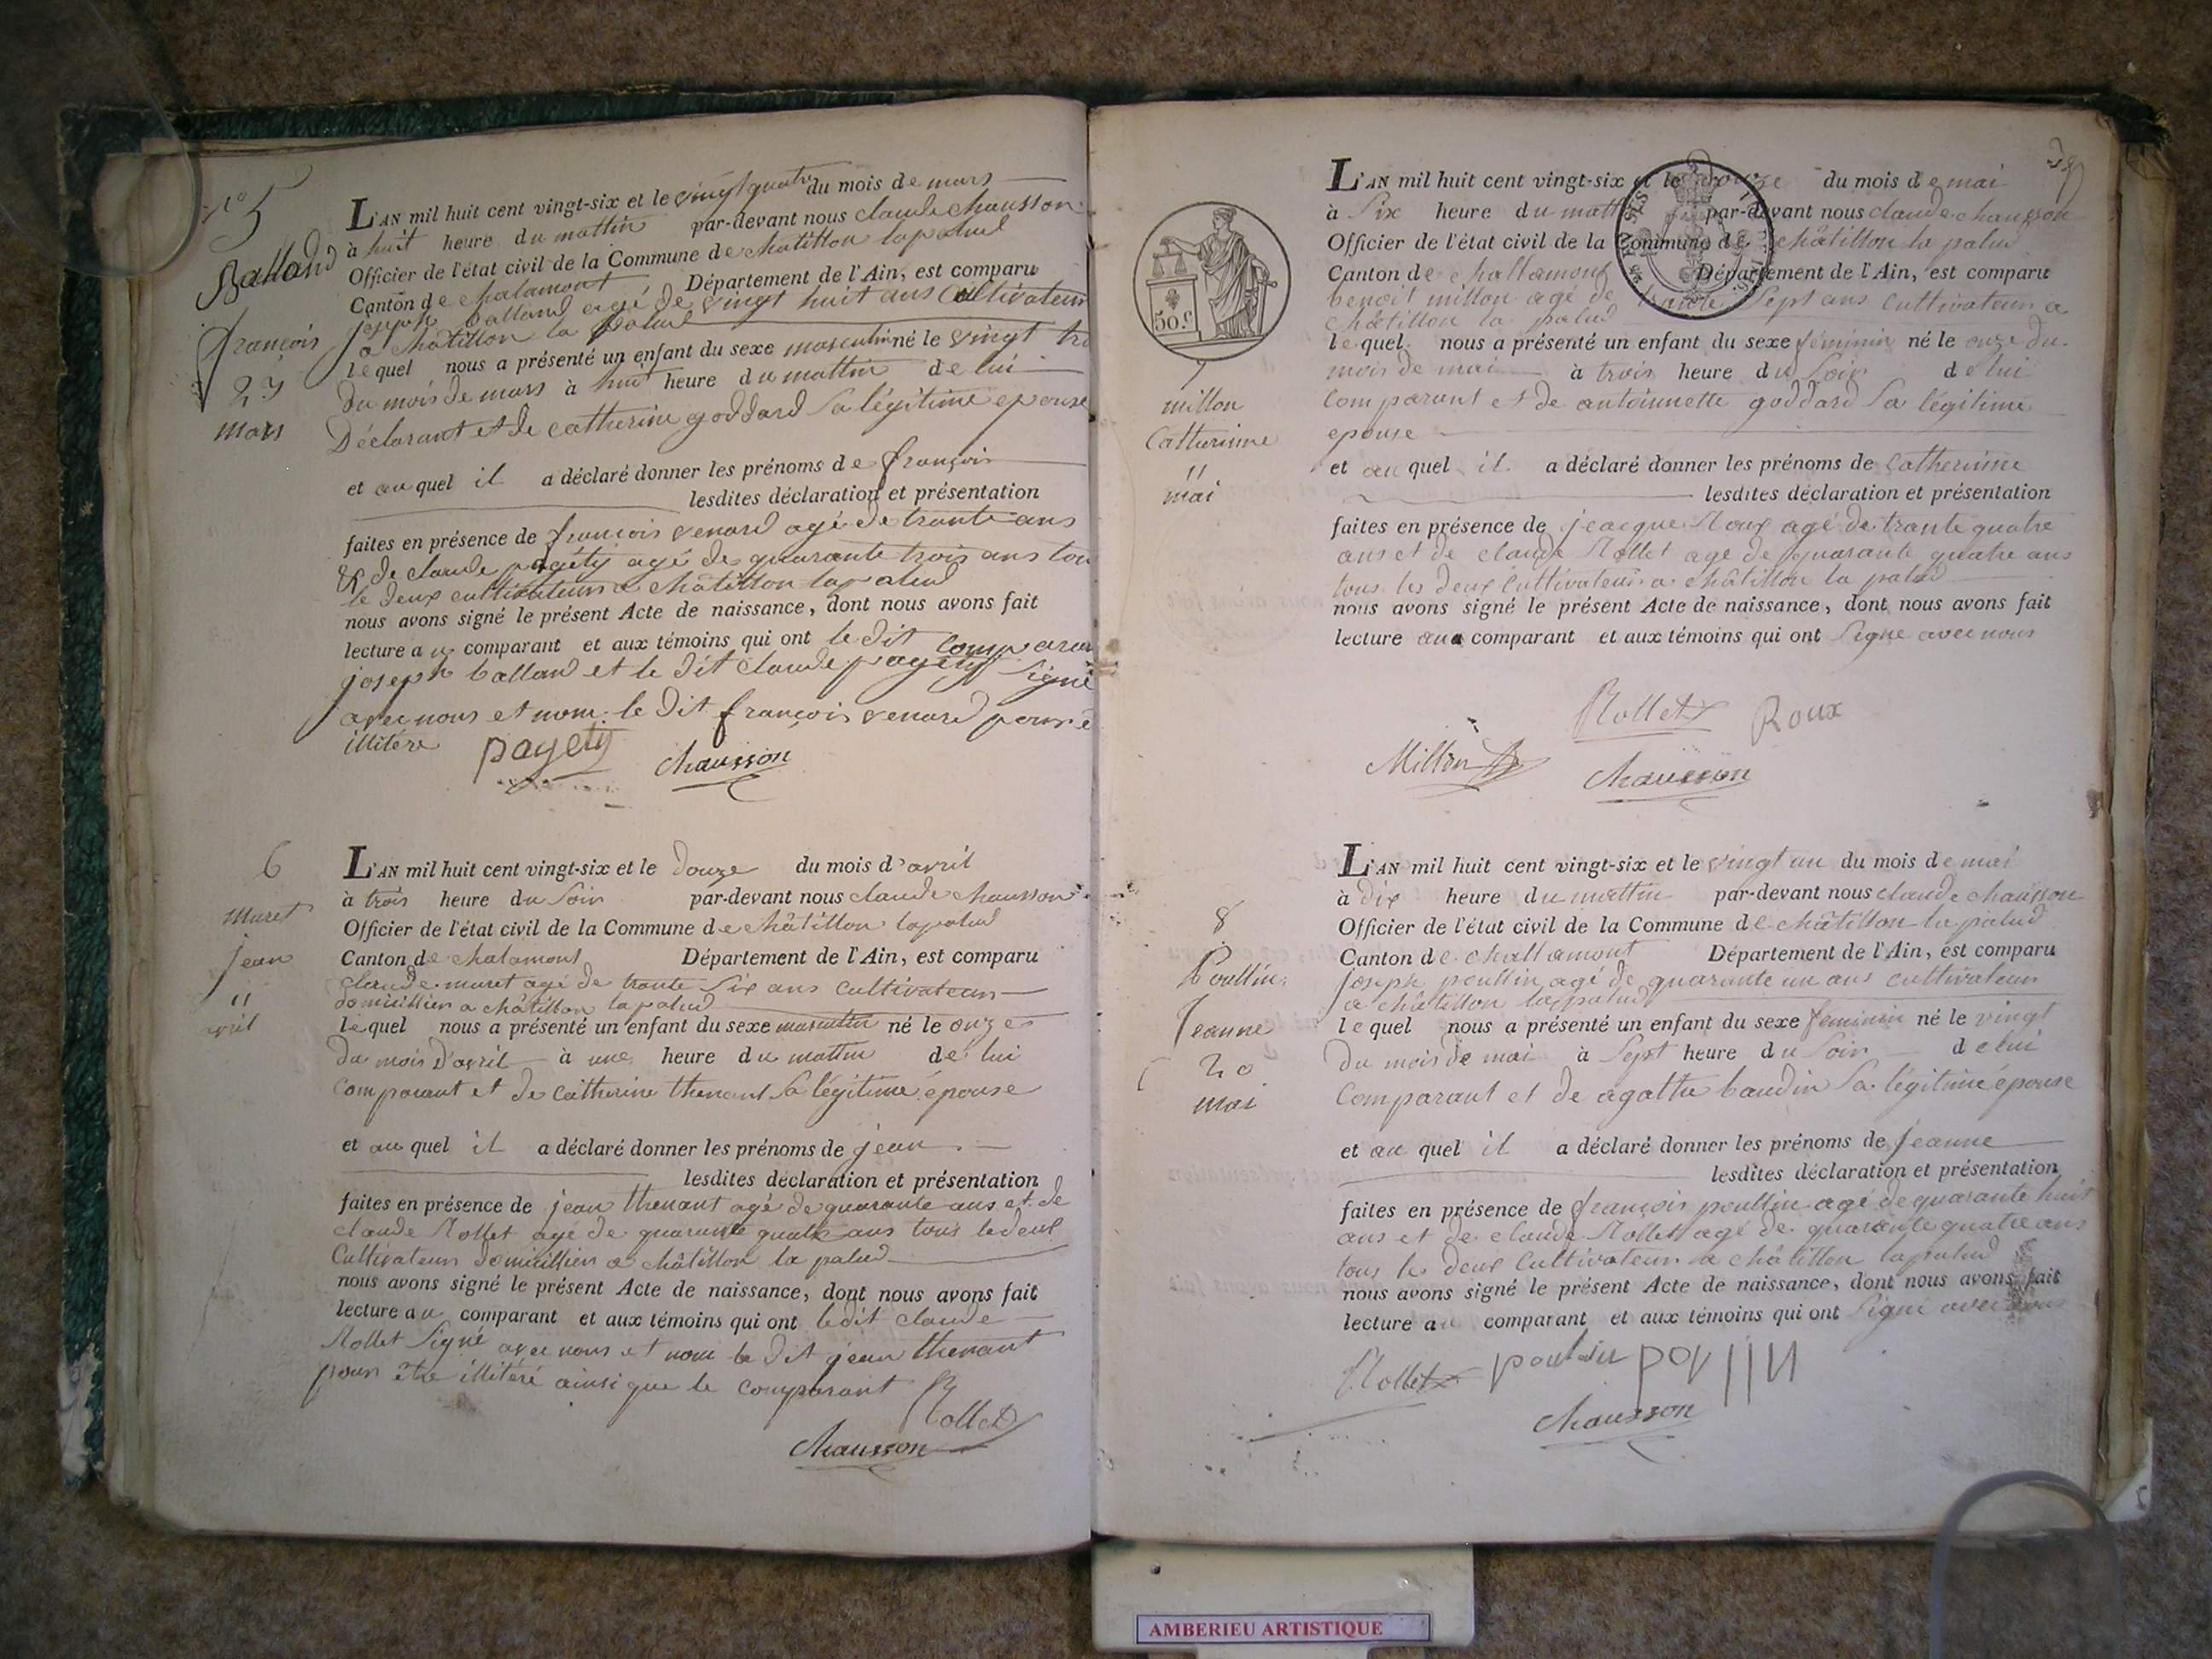 n° 5
Balland
françois
23
mars
L'AN mil huit cent vingt-six et le vingt quatre du mois de mars
à huit heure du mattin par-devant nous claude chausson
Officier de l'état civil de la Commune de châtillon lapalud
Canton de chalamont Département de l'Ain, est comparu
joseph balland agé de vingt huit ans Cultivateur
a châtillon la palud
lequel nous a présenté un enfant du sexe masculin né le vingt
du mois de mars à huit heure du mattin de lui
Déclarant et de catherine goddard sa légitime epouse
et au quel il a déclaré donner les prénoms de françois
lesdites déclaration et présentation
faites en présence de françois venard agé de trante ans
& de claude pagéty agé de quarante trois ans
le deux cultivateurs a châtillon lapalud
nous avons signé le présent Acte de naissance, dont nous avons fait
lecture au comparant et aux témoins qui ont le dit
joseph balland et le dit claude pagéty signé
avec nous et nom le dit françois venard pour
illitére
pagety chausson
6
muret
jean
11
avril
L'AN mil huit cent vingt-six et le douze du mois d'avril
à trois heure du soir par-devant nous claude chausson
Officier de l'état civil de la Commune de châtillon lapalud
Canton de chalamont Département de l'Ain, est comparu
claude muret agé de trante six ans cultivateur
domicillier a châtillon lapalud
lequel nous a présenté un enfant du sexe masculin né le onze
du mois D'avril à une heure du mattin de lui
comparant et de catherine thenant sa légitime épouse
et au quel il a déclaré donner les prénoms de jean
lesdites déclaration et présentation
faites en présence de jean thenant agé de quarante ans et de
claude Rollet agé de quarante quatre ans tous ledeux
Cultivateurs domicillier a châtillon la palud
nous avons signé le présent Acte de naissance, dont nous avons fait
lecture au comparant et aux témoins qui ont ledit claude
Rollet signé avec nous et nom le Dit jean thenant
pour être illitéré ainsi que le comparant
Rollet
chausson
50.c
7
millon
Catherinne
11
mai
L'AN mil huit cent vingt-six et le douze du mois de mai
à six heure du mattin par-devant nous claude chausson
Officier de l'état civil de la Commune de châtillon la palud
Canton de challamont Département de l'Ain, est comparu
benoit millon agé de trante sept ans cultivateur a
châtillon la palud
lequel nous a présenté un enfant du sexe féminin né le onze du
mois de mai à trois heure du soir de lui
comparant et de antoinnette goddard sa légitime
epouse
et au quel il a déclaré donner les prénoms de catherinne
lesdites déclaration et présentation
faites en présence de jeacque Roux agé de trante quatre
ans et de claude Rollet agé de quarante quatre ans
tous les deux Cultivateurs a châtillon la palud
nous avons signé le présent Acte de naissance, dont nous avons fait
lecture au comparant et aux témoins qui ont signé avec nous
Rollet Roux
Millon chausson
8
Poullin
Jeanne
20
mai
L'AN mil huit cent vingt-six et le vingt un du mois de mai
à dix heure du mattin par-devant nous claude chausson
Officier de l'état civil de la Commune de châtillon la palud
Canton de challamont Département de l'Ain, est comparu
joseph poullin agé de quarante un ans cultivateur
a châtillon la palud
lequel nous a présenté un enfant du sexe féminin né le vingt
du mois de mai à sept heure du soir de lui
Comparant et de agathe baudin sa légitime épouse
et au quel il a déclaré donner les prénoms de jeanne
lesdites déclaration et présentation
faites en présence de françois poullin agé de quarante huit
ans et de claude Rollet agé de quarante quatre ans
tous les deux Cultivateurs a châtillon lapalud
nous avons signé le présent Acte de naissance, dont nous avons fait
lecture au comparant et aux témoins qui ont signé avec nous
Rollet
chausson
AMBERIEU ARTISTIQUE